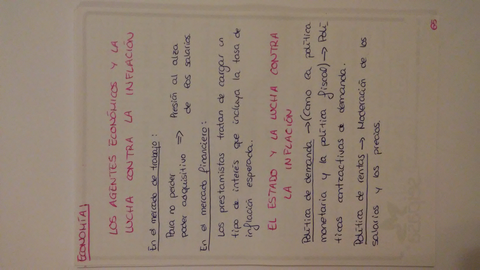 ECONOMÍA
LOS AGENTES ECONÓMICOS Y LA
LUCHA CONTRA LA INFLACIÓN
En el mercado de trabajo:
Para no perder
poder adquisitivo ⇒ Presión al alza
de los salarios
En el mercado financiero:
Los prestamistas tratan de cargar un
tipo de interés que incluya la tasa de
inflación esperada.
EL ESTADO Y LA LUCHA CONTRA
LA INFLACIÓN
Política de demanda → (Como la política
monetaria y la política fiscal) → Polí-
ticas contractivas de demanda.
Política de rentas → Moderación de los
salarios y los precios.